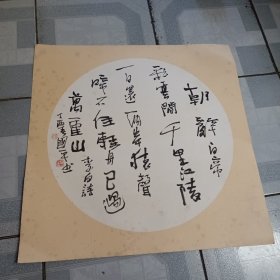 朝辭白帝
彩雲間千里江陵
一日還兩岸猿聲
啼不住輕舟已過
萬重山
李白詩
丁酉